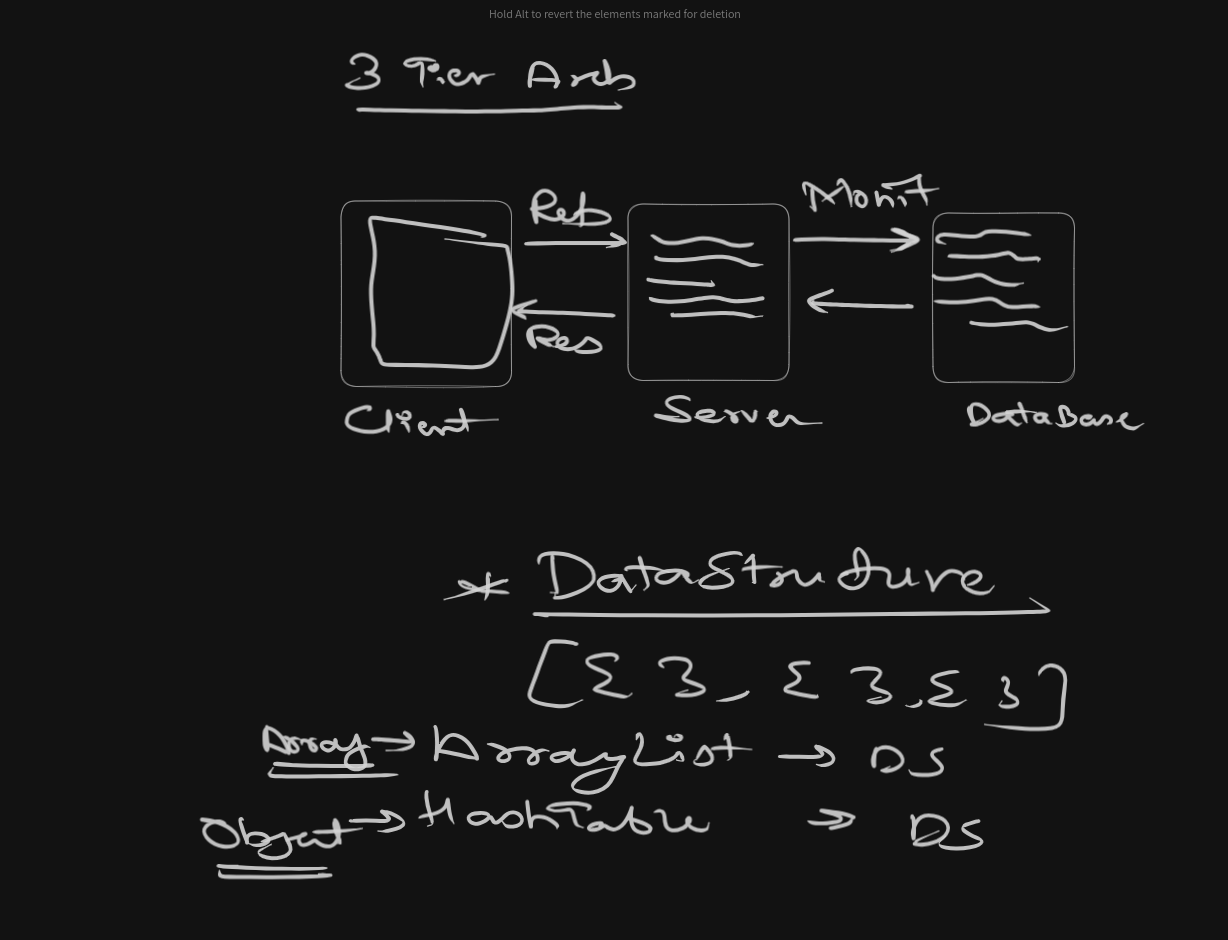 Hold Alt to revert the elements marked for deletion
3 Tier Arch
Req
Monit
Res
Client
Server
DataBase
* DataStructure
[{ }, { }, { }]
Array → ArrayList → DS
Object → HashTable → DS